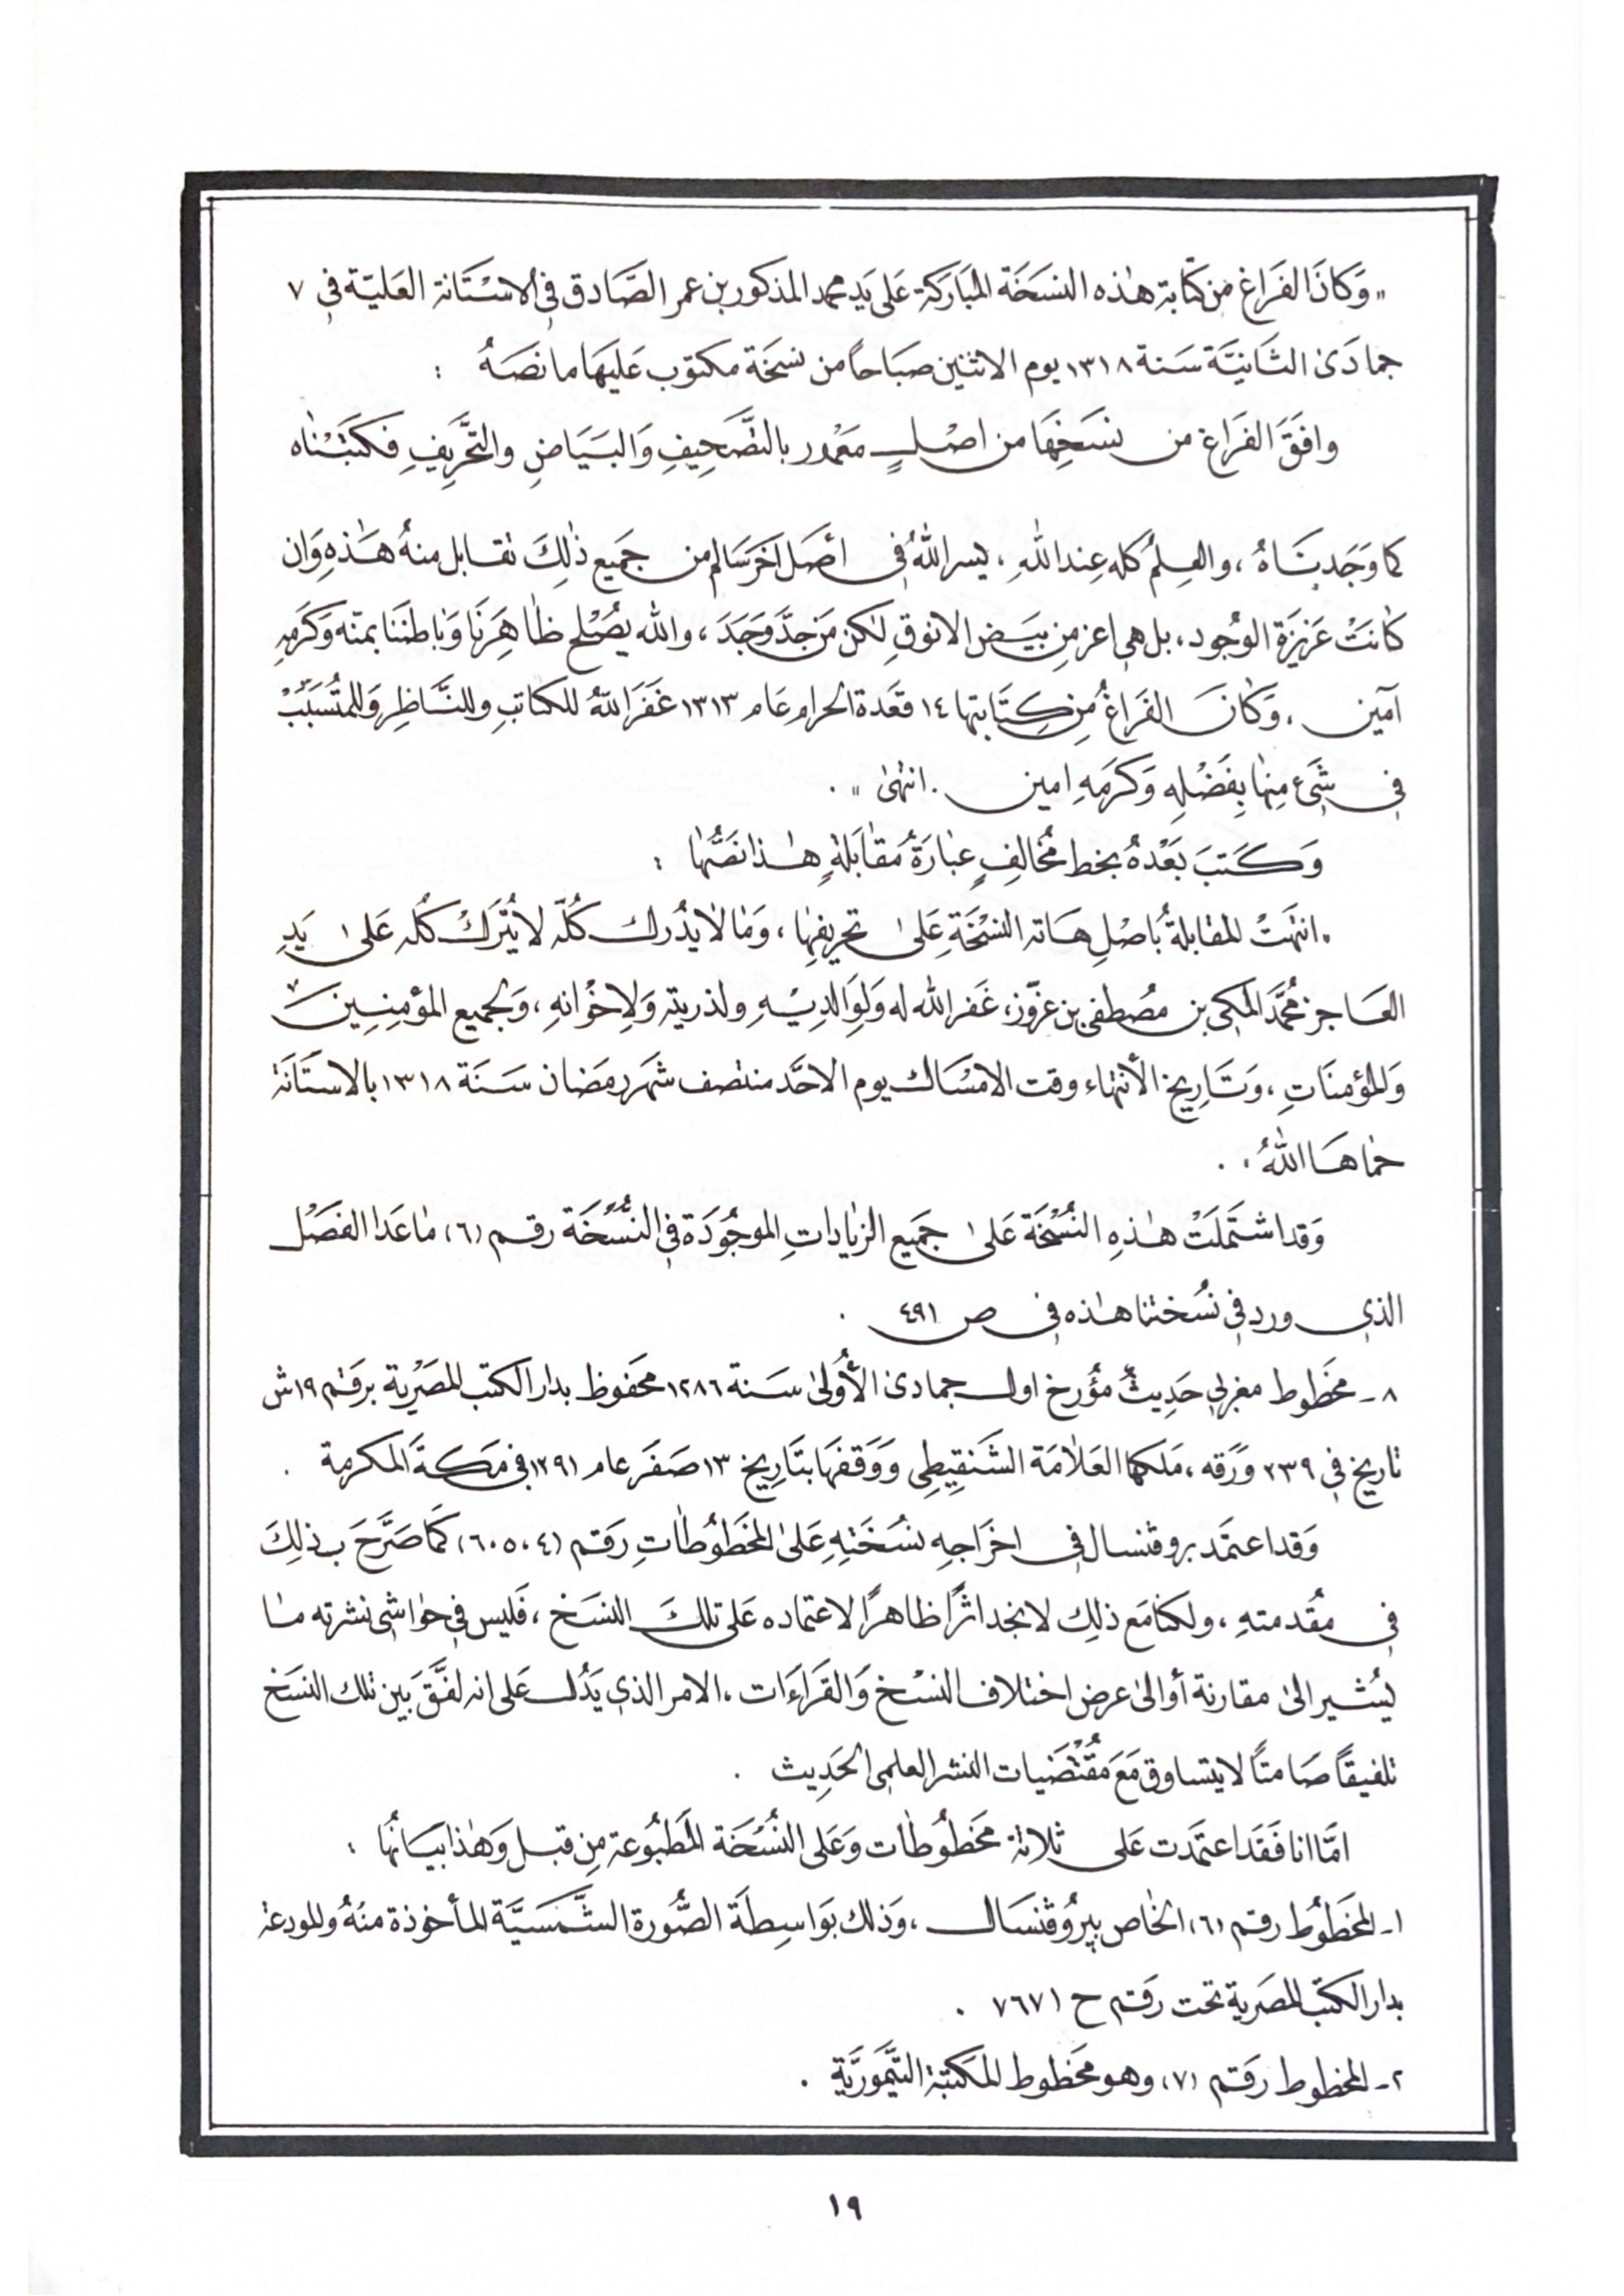 " وَكَانَ الفَرَاغ من كتابة هٰذه النسَخَة المبَاركَةِ عَلى يَد محمد المذكور بن عمر الصَّادق في الاسْتَانة العَليّة في ٧
جمادَىٰ الثَانيَّة سَنة ١٣١٨ يوم الاثنين صبَاحاً من نسخَة مكتوب عَليهَا ما نصَهُ :
وافقَ الفرَاغ من نسَخِهَا من اصْلٍ مَعْمور بالتصَّحِيفِ وَالبَيَاضِ والتحَّرِيفِ فكتَبْنٰاه
كما وَجَدينَاهُ ، والعِلمُ كله عِند اللهِ ، يسر اللهُ في أصَل آخَر سَالم من جَميع ذٰلِكَ تقابل منهُ هَـٰذهِ وَان
كانَتْ عَزيزَة الوجُود ، بل هي اعز مِن بيَض الانوقِ لٰكن مَن جدَّ وَجَدَ ، والله يصُلح ظاهِرنَا وَباطننَا بمنّه وَكَرَمِهِ
آمين . وَكانَ الفرَاغُ مِن كِتَابتها ١٤ قعَدة الحرام عَام ١٣١٣ غَفَرَ اللهُ للكاتبِ وللنَّاظِر وَللمتُسَبّبْ
في شَيء مِنهٰا بِفَضْلِهِ وَكرَمَهِ امين . انتهٰى " .
وَكَتبَ بَعْدهُ بخط مُخالفٍ عبَارَةُ مُقابَلةٍ هٰـذا نصَّهٰا :
" انتهَتْ المقابلةُ بأصْلِ هَاته النسْخَةِ عَلىٰ تحريفهِٰا ، وَمٰا لاٰ يدُرك كُلّه لا يُترَكْ كلُه عَلىٰ يَدِ
العَاجز مُحمَّد المكي بن مصُطفى بن عزّوز ، غَفر الله له وَلِوَالديْهِ ولذريته وَلاِخوْانهِ ، وَلجميع المؤمنِيِنَ
وَالمؤمنَاتِ ، وَتَارِيخ الأنتهاء وقت الامسْاك يوم الاحَد منتصف شهَر رمَضان سَنَة ١٣١٨ بالاستَانَة
حمٰاهَا اللهُ " .
وَقد اشتَملَتْ هٰـذهِ النُسْخَة عَلىٰ جمَيع الزيٰاداتِ الموجُودَة في النُّسْخَة رقم (٦) مٰا عَدا الفصَل
الذي ورد في نسُختنا هٰـذه في ص ٤٩١ .
٨ - مخَطوط مغربي حَدِيثٌ مؤرخ اول جمادىٰ الأُولىٰ سَنة ١٢٨٦ محَفوظ بدار الكتب المصَريّة برقم ١٩ ش
تاريخ في ٢٣٩ وَرَقه ، مَلكها العَلاّمَة الشَنقِيطِي وَوَقفهَا بتَارِيخ ١٣ صَفَر عام ١٢٩١ في مَكـة المكرمة .
وَقد اعتمَد بروڤنسال في اخرَاجِه نسُخَتِهِ عَلىٰ المخَطوُطٰاتِ رَقم (٤ ، ٥ ، ٦) كَما صَرَّحَ بذلِكَ
في مقُدمتهِ ، ولكنا مَع ذلِك لا نجد اثرًا ظاهرًا لاعتماده عَلى تلكَ النسَخ ، فَليس في حوٰاشي نشرته مٰا
يشُير الىٰ مقارنة أو الىٰ عرض اختلاف النسْخ وَالقَراءَات ، الامر الذي يَدُل عَلى انه لفَّقَ بَين تلك النسَخ
تلفيقًا صَامتاً لا يتساوق مَعَ مقُتَضَيات النشر العلمي الحَدِيث .
امَّا انا فقَد اعتمَدت عَلى ثلاثة مخَطوُطٰات وَعَلى النُسْخَة المطبُوعة مِن قبل وَهٰذا بيَانُهٰا :
١ - المخَطوُط رقم (٦) الخٰاص بپروُڤنسَال ، وَذلك بوَاسِطة الصُّورة الشَّمسَيَّة المأخوذة منهُ والمودعة
بدار الكتب المصَرية تحت رقم ح ٧٦٧١ .
٢ - المخطوط رَقم (٧) وهو مخَطوط المكَتبة التَّيمَورَيّة .
١٩